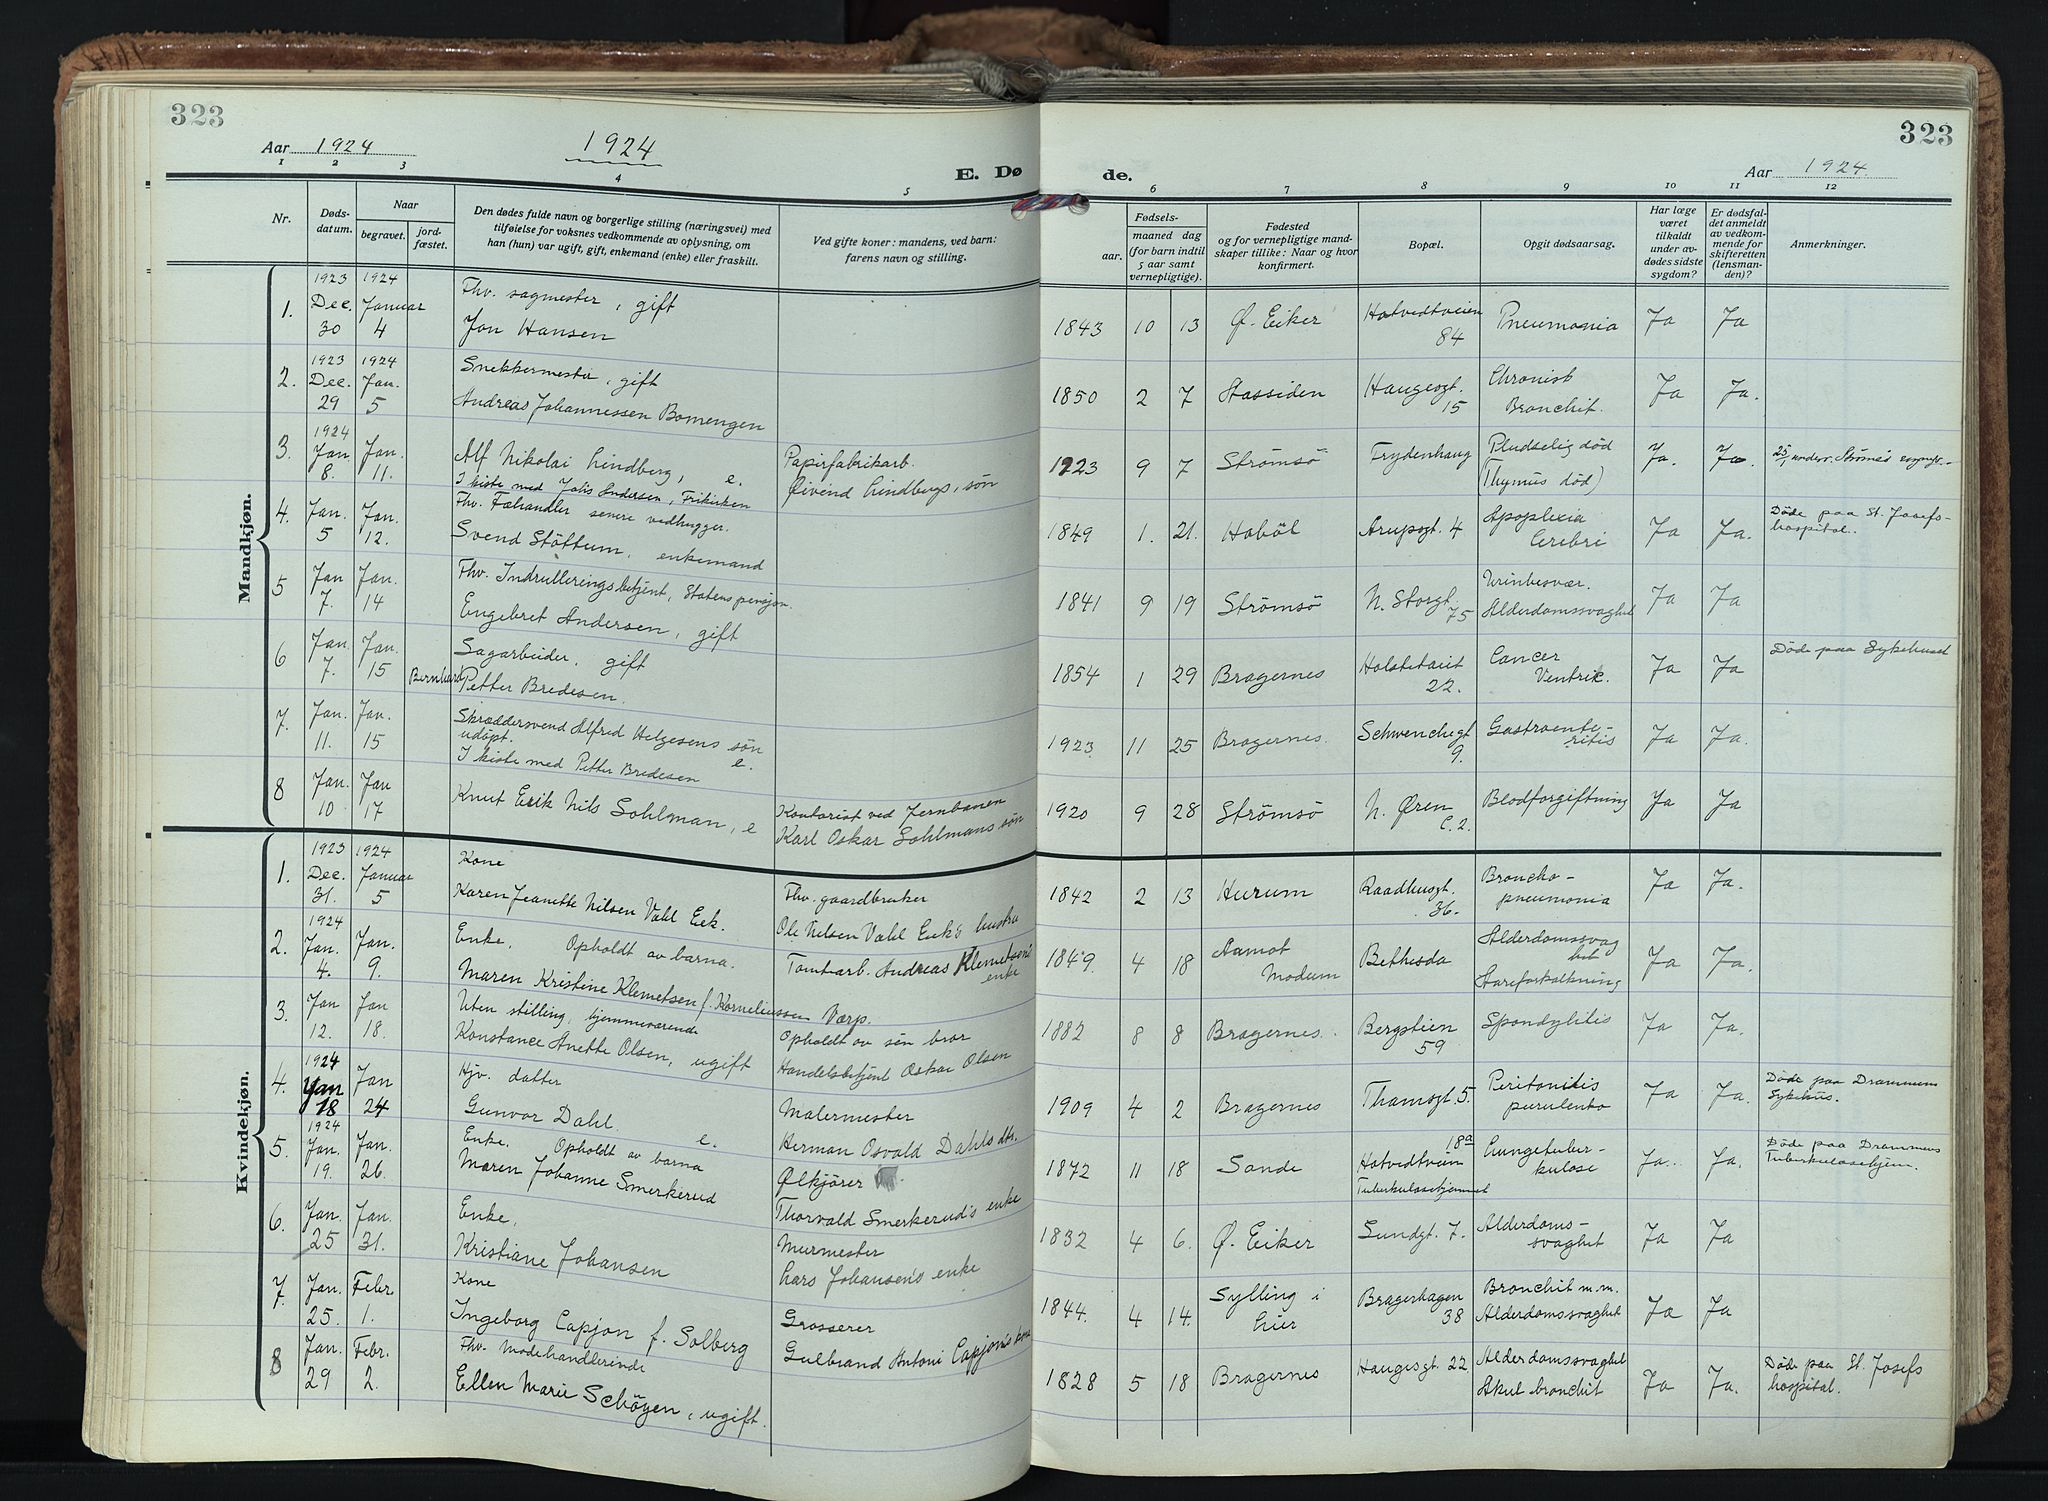 323
323
Aar 1924
1924
E. Dø
de.
Aar 1924.
1 2 3 4 5 6 7 8 9 10 11 12
Nr.
Døds-
datum.
Naar
begravet.
jord-
fæstet.
Den dødes fulde navn og borgerlige stilling (næringsvei) med
tilføielse for voksnes vedkommende av oplysning, om
han (hun) var ugift, gift, enkemand (enke) eller fraskilt.
Ved gifte koner: mandens, ved barn:
farens navn og stilling.
Fødsels-
aar. maaned dag
(for barn indtil
5 aar samt
vernepligtige).
Fødested
og for vernepligtige mand-
skaper tillike: Naar og hvor
konfirmert.
Bopæl.
Opgit dødsaarsag.
Har læge
været
tilkaldt
under av-
dødes sidste
sygdom?
Er dødsfal-
det anmeldt
av vedkom-
mende for
skifteretten
(lensman-
den)?
Anmerkninger.
Mandkjøn.
1923 1924
1. Dec. Januar Fhv. sagmester, gift
30 4 Jon Hansen
1843 10 13 Ø. Eiker Hotvedtveien 84 Pneumonia Ja Ja
1923 1924
2. Dec. Jan. Snekkermester, gift
29 5 Andreas Johannessen Bomengen
1850 2 7 Haugesgt. 15 Chronisk Bronchit. Ja Ja.
1924
3. Jan. Jan. Alf Nikolai Lindberg, e. Papirfabrikarb.
8. 11. I kiste med Andersen, Frikirken Øivind Lindbergs, søn
1923 9 7 Strömsö Frydenhaug Pludselig död
(Thymus död) Ja. Ja.
4. Jan. Jan. Fhv. Fæhandler senere vedhugger.
5 12. Svend Stöttum, enkemand
1849 1. 21. Hoböl Arupsgt. 4 Apoplexia
Cerebri Ja Ja. Döde paa St. Josefs-
hospital.
5 Jan Jan. Fhv. Indrulleringsbetjent, Statens pensjon.
7. 14 Engebret Andersen, gift
1841 9 19 Strömsö N. Storgt. 75 Urinbesvær.
Alderdomssvaghet Ja Ja
6 Jan. Jan. Sagarbeider, gift
7. 15 Bernhard Petter Bredesen.
1854 1 29 Bragernes 22. Cancer
Ventrik. Ja Ja Döde paa Sykehuset
7. Jan. Jan. Skræddersvend Alfred Helgesens søn
11. 15 udöpt. e.
I kiste med Petter Bredesen
1923 11 25 Bragernes. Schwenckegt. 9. Gastroente-
ritis Ja Ja.
8 Jan. Jan Knut Erik Nils Sohlman, e Kontorist ved Jernbanen
10 17 Karl Oskar Sohlmans søn
1920 9 28 Strömsö N. Øren C. 2. Blodforgiftning Ja Ja
Kvindekjøn.
1923 1924
1. Dec. Januar Kone
31. 5 Karen Jeanette Nilsen Vahl Eek. Fhv. gaardbruker
Ole Nilsen Vahl Eek's hustru
1842 2 13 Hurum Raadhusgt. 36. Broncho-
pneumonia Ja Ja.
1924
2. Jan. Jan. Enke. Opholdt av barna.
4. 9. Maren Kristine Klemetsen f. Korneliussen Værp. Tomtarb. Andreas Klemetsens
enke
1849. 4 18 Aamot
Modum Bethesda Alderdomssvag
het
Aareforkalkning Ja Ja.
3. Jan Jan Uten stilling, hjemmeværende
12. 18. Konstance Anette Olsen, ugift Opholdt av sin bror
Handelsbetjent Oskar Olsen
1882 8 8 Bragernes. Bergstien 59 Spondylitis Ja Ja.
1924
4. Jan Jan Hjv. datter
18 24 Gunvor Dahl. e. Malermester
Herman Osvald Dahls dtr.
1909 4 2 Bragernes Thamsgt. 5. Peritonitis
purulenta Ja Ja. Döde paa Drammens
Sykehus.
1924
5. Jan. Jan. Enke. Opholdt av barna
19. 26. Maren Johanne Smerkerud Ølkjører
Thorvald Smerkerud's enke
1872 11 18 Sande Hotvedtveien 18a
Tuberkulosehjemmet Lungetuber-
kulose Ja. Ja. Döde paa Drammens
Tuberkulosehjem.
6. Jan. Jan. Enke.
25 31. Kristiane Johansen Murmester
Lars Johansen's enke
1832 4 6. Ø. Eiker Sundgt. 7. Alderdoms-
svaghet Ja Ja
7. Jan. Febr Kone
25. 1. Ingeborg Capjon f. Solberg Grosserer
Gulbrand Antoni Capjon's kone
1844. 4 14. Sylling i
Lier Bragerhagen 38 Bronchit m.m.
Alderdomssvaghet Ja Ja
8 Jan. Febr. Fhv. Modehandlerinde
29 2. Ellen Marie Schöyen, ugift.
1828 5 18 Bragernes Haugesgt. 22 Alderdomssvaghet
Akut bronchit Ja Ja. Döde paa St. Josefs
hospital.